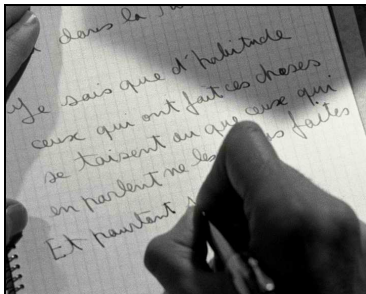 dans la
Je sais que d'habitude
ceux qui ont fait ces choses
se taisent ou que ceux qui
en parlent ne les faites
Et pourtant